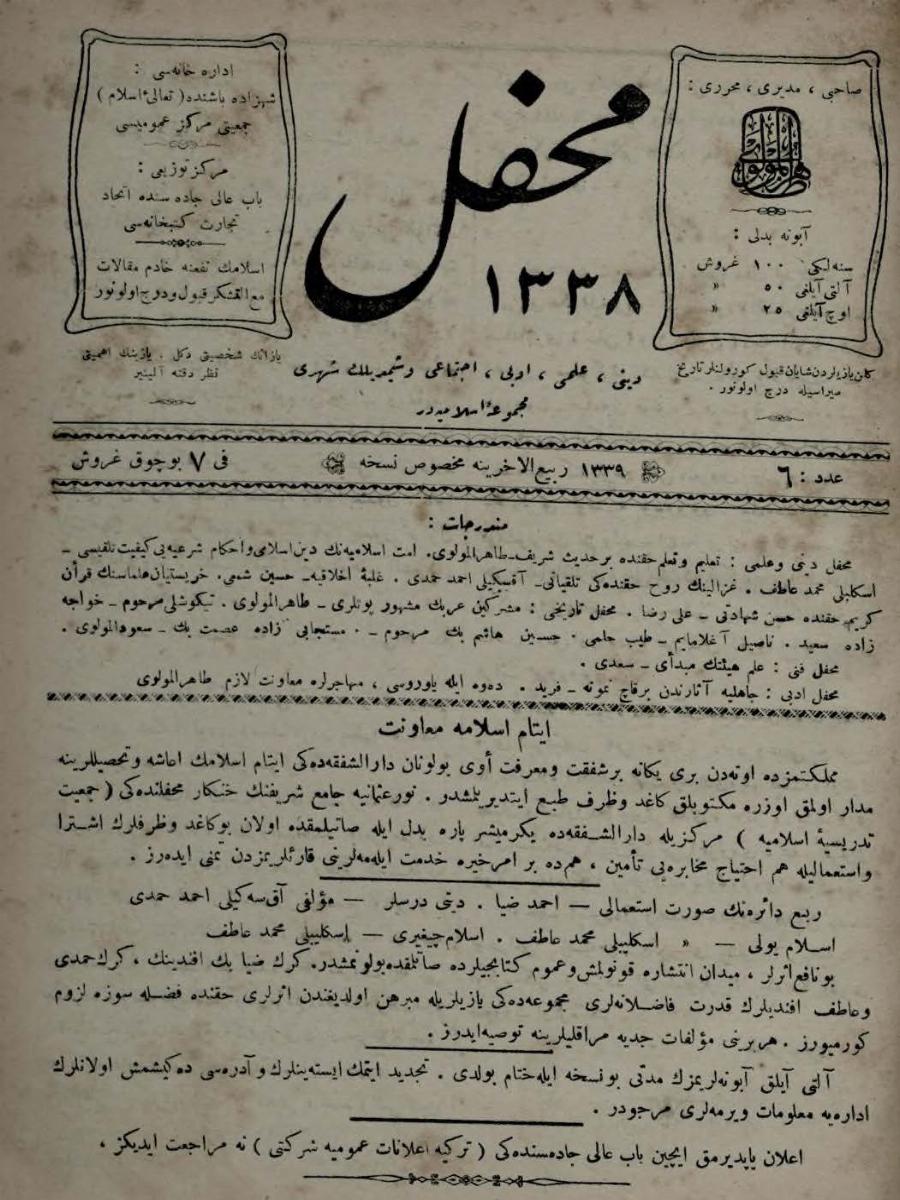 صاحبی ، مدیری ، محرری :
طاهر المولوی
آبونه بدلی :
سنه لکی ١٠٠ غروش
آلتی آیلغی ٥٠ »
اوچ آیلغی ٢٥ »
کلن یازیلردن شایان قبول کورولنلر تاریخ
صیراسیله درج اولونور .
محفل
١٣٣٨
دینی ، علمی ، ادبی ، اجتماعی و شیمدیلك شهری
مجموعۀ اسلامیه در
اداره خانه سی :
شهزاده باشنده ( تعالیٔ اسلام )
جمعیتی مرکز عمومیسی
مرکز توزیعی :
باب عالی جاده سنده اتحاد
تجارت کتبخانه سی
اسلامك نفعنه خادم مقالات
مع التشکر قبول و درج اولونور
یازانك شخصیتی دکل . یازینك اهمیتی
نظر دقته آلینیر
عدد : ٦
١٣٣٩ ربیع الاخرینه مخصوص نسخه
فی ٧ بوچوق غروش
مندرجات :
محفل دینی و علمی : تعلیم و تعلم حقنده بر حدیث شریف ـ طاهر المولوی . امت اسلامیه نك دین اسلامی و احکام شرعیه یی کیفیت تلقیسی ـ
اسکلیبلی محمد عاطف . غزالینك روح حقنده کی تلقیاتی ـ آقسکیلی احمد حمدی . غلبۀ اخلاقیه ـ حسین شمسی . خریستیان علماسنك قرآن
کریم حقنده حسن شهادتی ـ علی رضا . محفل تاریخی : مشرکین عربك مشهور پوتلری ـ طاهر المولوی . تیکوشلی مرحوم ـ خواجه
زاده سعید . ناصیل آغلامایم ـ طیب حلمی . حسین هاشم بك مرحوم ـ . مستجابی زاده عصمت بك ـ سعود المولوی .
محفل فنی : علم هیئتك مبدأی ـ سعدی .
محفل ادبی : جاهلیه آثارندن برقاچ نمونه ـ فرید . دەوه ایله یاوروسی ، مهاجرلره معاونت لازم طاهر المولوی
ایتام اسلامه معاونت
مملکتمزده اوته دن بری یکانه بر شفقت و معرفت اوی بولونان دار الشفقه ده کی ایتام اسلامك اعاشه و تحصیللرینه
مدار اولمق اوزره مکتوبلق کاغد و ظرف طبع ایتدیریلمشدر . نور عثمانیه جامع شریفنك خنکار محفلنده کی ( جمعیت
تدریسیۀ اسلامیه ) مرکزیله دار الشفقه ده یکرمیشر پاره بدل ایله صاتیلمقده اولان بو کاغد و ظرفلرك اشترا
و استعمالیله هم احتیاج مخابره یی تأمین ، هم ده بر امر خیره خدمت ایله مه لرینی قارئلریمزدن تمنی ایده رز .
ربع دائره نك صورت استعمالی — احمد ضیا . دینی درسلر — مؤلفی آق سه کیلی احمد حمدی
اسلام یولی — » اسکلیبلی محمد عاطف . اسلام چیغیری — اسکلیبلی محمد عاطف
بو نافع اثرلر ، میدان انتشاره قونولمش و عموم کتابجیلرده صاتلمقده بولونمشدر. کرك ضیا بك افندینك ، کرك حمدی
و عاطف افندیلرك قدرت فاضلانه لری مجموعه ده کی یازیلریله مبرهن اولدیغندن اثرلری حقنده فضله سوزه لزوم
کورمیورز . هر برینی مؤلفات جدیه مراقلیلرینه توصیه ایدرز .
آلتی آیلق آبونه لریمزك مدتی بو نسخه ایله ختام بولدی . تجدید ایتمك ایسته ینلرك و آدره سی ده کیشمش اولانلرك
اداره یه معلومات ویرمه لری مرجودر .
اعلان یاپدیرمق ایچین باب عالی جاده سنده کی ( ترکیه اعلانات عمومیه شرکتی ) نه مراجعت ایدیکز .